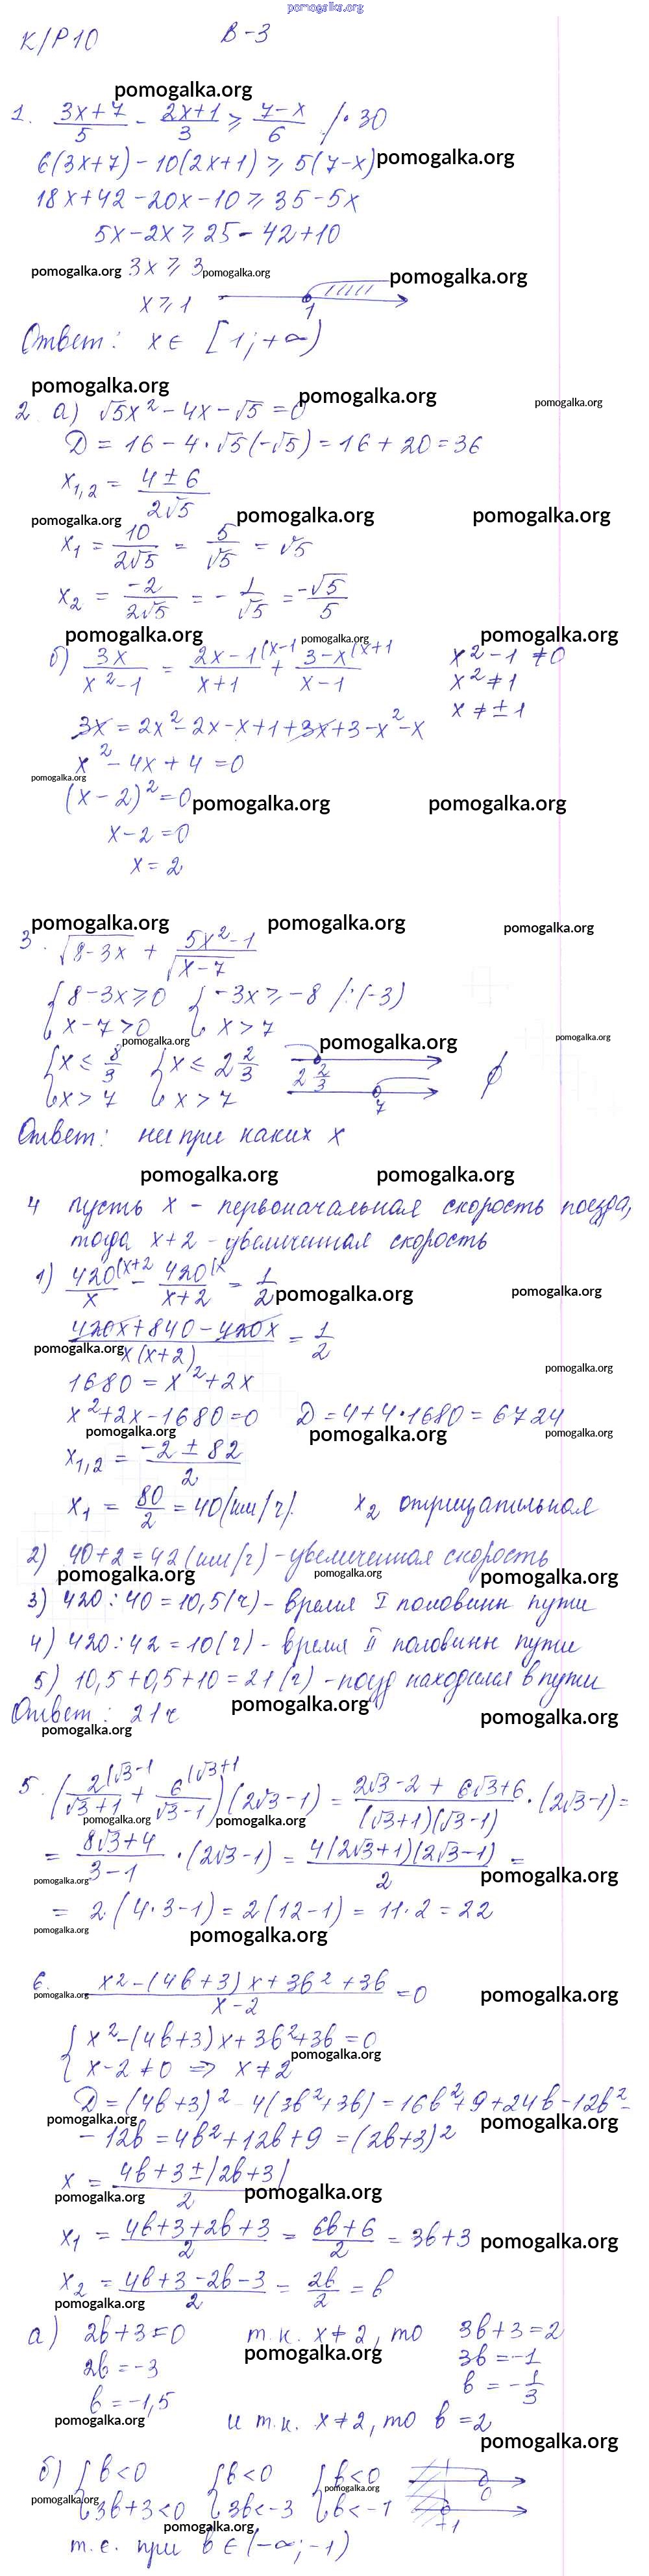 pomogalka.org
К/Р10 В-3
pomogalka.org
1. (3x+7)/5 - (2x+1)/3 ≥ (7-x)/6 /·30
6(3x+7) - 10(2x+1) ≥ 5(7-x) pomogalka.org
18x+42-20x-10 ≥ 35-5x
5x-2x ≥ 25-42+10
pomogalka.org 3x ≥ 3 pomogalka.org pomogalka.org
x ≥ 1 1
Ответ: x ∈ [1; +∞)
pomogalka.org pomogalka.org pomogalka.org
2. а) √5x² - 4x - √5 = 0
D = 16 - 4·√5(-√5) = 16 + 20 = 36
x₁,₂ = (4 ± 6)/(2√5)
pomogalka.org pomogalka.org pomogalka.org
x₁ = 10/(2√5) = 5/√5 = √5
x₂ = -2/(2√5) = -1/√5 = -√5/5
pomogalka.org pomogalka.org pomogalka.org
б) 3x/(x²-1) = (2x-1)/(x+1) (x-1 + (3-x)/(x-1) (x+1 x²-1 ≠ 0
x² ≠ 1
x ≠ ±1
3x = 2x²-2x-x+1+3x+3-x²-x
x² - 4x + 4 = 0
pomogalka.org
(x-2)² = 0 pomogalka.org pomogalka.org
x-2 = 0
x = 2
pomogalka.org pomogalka.org pomogalka.org
3. √(8-3x) + (5x²-1)/√(x-7)
{8-3x ≥ 0 {-3x ≥ -8 /:(-3)
{x-7 > 0 {x > 7
pomogalka.org pomogalka.org pomogalka.org
{x ≤ 8/3 {x ≤ 2 2/3 2 2/3 ∅
{x > 7 {x > 7 7
Ответ: ни при каких x
pomogalka.org pomogalka.org
4 Пусть x - первоначальная скорость поезда,
тогда x+2 - увеличенная скорость
1) 420/x (x+2 - 420/(x+2) (x = 1/2 pomogalka.org pomogalka.org
(420x+840-420x)/(x(x+2)) = 1/2
pomogalka.org pomogalka.org
1680 = x²+2x
x²+2x-1680=0 D = 4+4·1680 = 6724
pomogalka.org pomogalka.org pomogalka.org
x₁,₂ = (-2 ± 82)/2
x₁ = 80/2 = 40 (км/ч). x₂ отрицательная
2) 40+2 = 42 (км/ч) - увеличенная скорость
pomogalka.org pomogalka.org pomogalka.org
3) 420:40 = 10,5 (ч) - время I половины пути
4) 420:42 = 10 (ч) - время II половины пути
5) 10,5+0,5+10 = 21 (ч) - поезд находился в пути
Ответ: 21ч pomogalka.org pomogalka.org
pomogalka.org
5. (2/(√3+1) (√3-1 + 6/(√3-1) (√3+1)(2√3-1) = (2√3-2+6√3+6)/((√3+1)(√3-1)) · (2√3-1) =
pomogalka.org pomogalka.org
= (8√3+4)/(3-1) · (2√3-1) = 4(2√3+1)(2√3-1)/2 =
pomogalka.org pomogalka.org
= 2·(4·3-1) = 2(12-1) = 11·2 = 22
pomogalka.org pomogalka.org
6. (x²-(4b+3)x+3b²+3b)/(x-2) = 0
pomogalka.org pomogalka.org
{x²-(4b+3)x+3b²+3b = 0
{x-2 ≠ 0 => x ≠ 2 pomogalka.org
D = (4b+3)² - 4(3b²+3b) = 16b²+9+24b-12b²-
pomogalka.org pomogalka.org
-12b = 4b²+12b+9 = (2b+3)²
x = (4b+3±|2b+3|)/2
pomogalka.org pomogalka.org
x₁ = (4b+3+2b+3)/2 = (6b+6)/2 = 3b+3 pomogalka.org
x₂ = (4b+3-2b-3)/2 = 2b/2 = b
pomogalka.org
а) 2b+3=0 т.к. x≠2, то 3b+3=2
pomogalka.org
2b = -3 3b = -1
b = -1,5 b = -1/3
pomogalka.org и т.к. x≠2, то b = 2
pomogalka.org
б) {b < 0 {b < 0 {b < 0 0
pomogalka.org pomogalka.org
{3b+3<0 {3b<-3 {b < -1 -1
pomogalka.org
т.е. при b ∈ (-∞; -1)